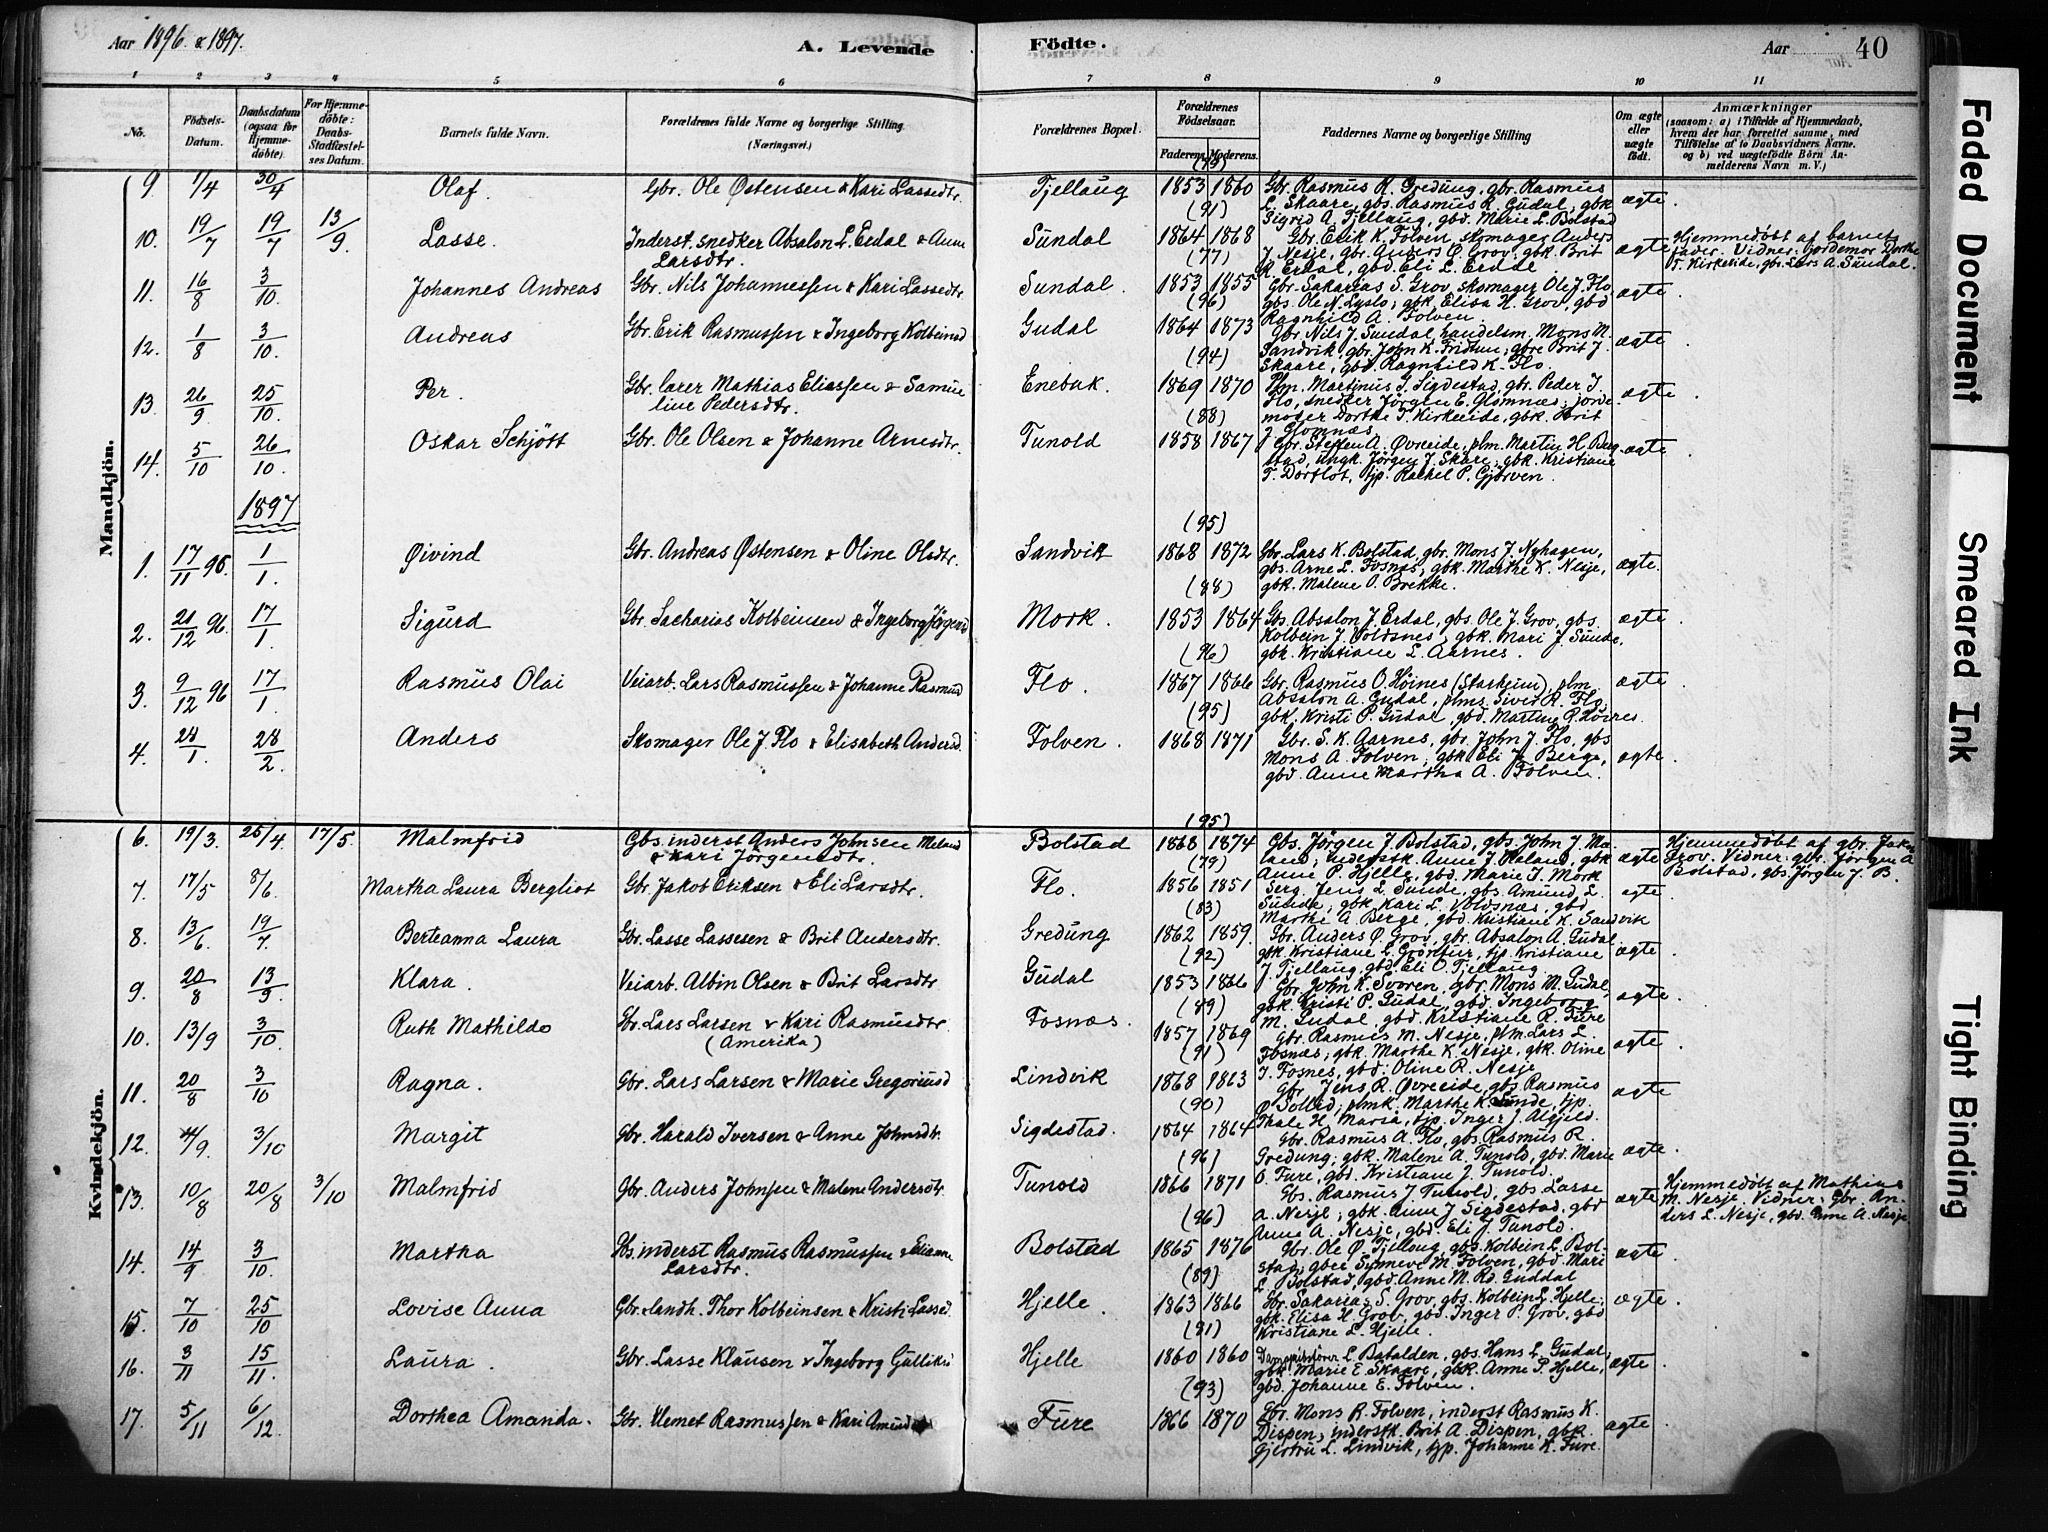 Aar 1896 & 1897.
A. Levende Födte.
Aar 40
1 2 3 4 5 6 7 8 9 10 11
No.
Födsels-Datum.
Daabsdatum (ogsaa for Hjemme-döbte).
For Hjemme-döbte: Daabs-Stadfæstel-ses Datum.
Barnets fulde Navn.
Forældrenes fulde Navne og borgerlige Stilling. (Næringsvei.)
Forældrenes Bopæl.
Forældrenes Födselsaar.
Faderens. Moderens.
Faddernes Navne og borgerlige Stilling
Om ægte eller uægte födt.
Anmærkninger
(saasom: a) i Tilfælde af Hjemmedaab,
hvem der har forrettet samme, med
Tilföielse af to Daabsvidners Navne.
og b) ved uægtefödte Börn An-
melderens Navn m. V.)
Mandkjön.
9 1/4 30/4 Olaf. Gbr. Ole Østensen & Kari Lassedtr. Tjellaug (79) 1853 1860 Gbr. Rasmus R. Gredung, gbr. Rasmus
L. Skaare, gbs. Rasmus R. Gudal, gbk
Sigrid A. Tjellaug, gbd. Marie L. Bolstad ægte.
10. 19/7 19/7 13/9 Lasse. Inderst. snedker Absalon L. Erdal & Anne
Larsdtr. Sundal (91) 1864 1868 Gbr. Erik K. Folven, skomager Anders
J. Nesje, gbr. Anders Ø. Grov, gbk. Brit
R. Erdal, gbd. Eli L. Erdal. ægte Hjemmedøbt af barnets
fader. Vidner: jordemor Dorthe
T. Kirkeeide, gbr. Lars A. Sundal.
11. 16/8 3/10. Johannes Andreas Gbr. Nils Johannessen & Kari Lassedtr. Sundal. (77) 1853 1855 Gbr. Sakarias S. Grov, skomager Ole J. Flo,
gbs. Ole N. Lyslo; gbk. Elisa H. Grov, gbd
Ragnhild A. Folven. ægte.
12. 1/8 3/10. Andreas Gbr. Erik Rasmussen & Ingeborg Kolbeinsd Gudal (96) 1864 1873 Gbr. Nils J. Sundal, handelsm. Mons M.
Sandvik, gbr. John K. Fridtun; gbre Brit J.
Skaare, gbd. Ragnhild K. Flo. ægte.
13. 26/9 25/10. Per. Gbr. Carer Mathias Eliassen & Samue
line Pedersdtr. Enebak. (94) 1869 1870 Plm. Martinus G. Sigdestad, gbr. Peder J.
Flo, snedker Jörgen E. Glomnæs; jorde
moder Dorthe T. Kirkeeide, gbk. Brit
J. Glomnæs ægte.
14. 5/10 26/10. Oskar Schjött Gbr. Ole Olsen & Johanne Arnesdtr. Tunold (88) 1858 1867 Gbr. Steffen A. Øvreeide, plm. Martin H. Berg
stad, ungk. Jörgen J. Skåre; gbk. Kristiane
T. Dortlot, tjp. Rachel P. Gjørven. ægte
1897
1. 17/11 96. 1/1. Øivind Gbr. Andreas Østensen & Oline Olsdtr. Sandvik (95) 1868 1872 Gbr. Lars K. Bolstad, gbr. Mons J. Nyhagen,
gbs. Arne L. Fosnæs; gbk. Marthe K. Nesje,
gbk. Malene O. Brekke. ægte.
2. 21/12 96. 17/1. Sigurd Gbr. Sacharias Kolbeinsen & Ingeborg Jörgensd Mork. (88) 1853 1864 Gbs. Absalon J. Erdal, gbs. Ole J. Grov, gbs.
Kolbein J. Voldsnes; gbk. Mari J. Sunde,
gbk. Kristiane L. Aarnes. ægte.
3. 9/12 96 17/1. Rasmus Olai Veiarb. Lars Rasmussen & Johanne Rasmusd Flo. (96) 1867 1866 Gbr. Rasmus O. Höines (Starheim), plm.
Absalon A. Gudal, plms. Siver R. Flo;
gbk. Kristi P. Gudal, gbd. Martine R. Höines ægte.
4. 24/1. 28/2. Anders Skomager Ole J. Flo & Elisabeth Andersd. Folven. (95) 1868 1871 Gbr. S. K. Aarnes, gbr. John J. Flo, gbs
Mons A. Folven; gbk Eli J. Berge,
gbd. Anne Martha A. Folven. ægte.
Kvindekjön.
6. 19/3. 25/4. 17/5. Malmfrid Gbs. inderst Anders Johnsen Meland
& Kari Jörgensdtr. Bolstad (95) 1868 1874 Gbs. Jörgen J. Bolstad, gbs. John J. Mæ
land; inderstk. Anne J. Mæland, gbk
Anne P. Hjelle, gbd. Marie J. Mork ægte Hjemmedöbt af gbr. Jakob
Grov. Vidner: gbr. Jörgen A
Bolstad, gbs. Jörgen J. B.
7. 17/5 8/6. Martha Laura Bergliot Gbr. Jakob Eriksen & Eli Larsdtr. Flo. (79) 1856 1851 Serg. Jens L. Sunde, gbs. Amund L.
Sunde; gbk. Kari L. Voldsnæs, gbd
Marthe A. Berge, gbd. Kristiane K. Sandvik ægte.
8. 13/6. 19/7. Berteanna Laura Gbr. Lasse Lassesen & Brit Andersdtr. Gredung (83) 1862 1859. Gbr. Anders Ø. Grov, gbr. Absalon A. Gudal
gbk. Kristiane L. Grøntur, tjp. Kristiane
J. Tjellaug, gbd. Eli O. Tjellaug. ægte.
9. 20/8 13/9. Klara. Veiarb. Albin Olsen & Brit Larsdtr. Gudal (92) 1853 1866 Gbr. John K. Svoren, gbr. Mons M. Gudal,
gbk. Kristi P. Gudal, gbd. Ingeborg
M. Gudal, gbd. Kristiane R. Fure ægte.
10. 13/9 3/10. Ruth Mathilde Gbr. Lars Larsen & Kari Rasmusdtr.
(Amerika) Fosnæs. (89) 1857 1869 Gbr. Rasmus M. Nesje, plm. Lars L.
Fosnæs; gbk. Marthe K. Nesje, gbk. Oline
J. Fosnes, gbd. Oline R. Nesje ægte.
11. 20/8 3/10 Ragna. Gbr. Lars Larsen & Marie Gregoriusd Lindvik (91) 1868 1863 Gbr. Jens R. Øvreeide, gbs Rasmus
Ø. Sollid; plmk. Marthe K. Sunde, tjp.
Thale H. Maria, tjp. Inger J. Algjeld. ægte
12. 4/9. 3/10 Margit Gbr. Harald Iversen & Anne Johnsdtr. Sigdestad. (90) 1864 1864 Gbr. Rasmus A. Flo, gbs. Rasmus R.
Gredung; gbk. Malene A. Tunold, gbd. Marie
O. Fure, gbd. Kristiane J. Tunold. ægte.
13. 10/8 20/8 3/10 Malmfrid Gbr. Anders Johnsen & Malene Andersdtr. Tunold (96) 1866 1871 Gbs. Rasmus J. Tunold, gbs. Lasse
A. Nesje; gbk. Anne J. Sigdestad, gbd
Anne A. Nesje, gbd. Eli J. Tunold. ægte Hjemmedöbt af Mathias
M. Nesje. Vidner: Gbr. An-
ders L. Nesje, gbd. Anne A. Nesje
14. 14/9 3/10. Martha Gbs. inderst Rasmus Rasmussen & Elianne
Larsdtr. Bolstad (96) 1865 1876 Gbr. Ole Ø. Tjellaug, gbs. Kolbein L. Bol-
stad; gbee Synneve M. Folven, gbd. Mari
L. Bolstad, gbd. Anne M. Rd. Guddal ægte.
15. 7/10 25/10 Lovise Anna Gbr. & landh. Thor Kolbeinsen & Kristi Lassed. Hjelle. (89) 1863 1866 Gbr. Sakarias S. Grov, gbs. Kolbein L. Hjelle;
gbk. Elisa H. Grov, gbd. Inger P. Grov, gbd
Kristiane L. Hjelle. ægte.
16. 3/11 15/11. Laura. Gbr. Lasse Klausen & Ingeborg Gulliksd Hjelle (91) 1860 1860 L. Batalden, gbs. Hans L. Gudal;
gbk. Marie E. Skaare, gbk. Anne P. Hjelle,
gbd. Johanne E. Folven. ægte.
17. 5/11 6/12 Dorthea Amanda. Gbr. Rasmussen & Kari Fure (93) 1866 1870 Gbr. Mons R. Folven, inderst Rasmus K.
Dispen; inderstk. Brit A. Dispen, gbk.
Gjertru L. Lindvik, tjp. Johanne K. Fure. ægte.
Faded Document
Smeared Ink
Tight Binding